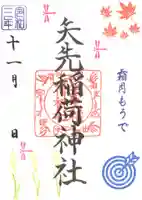 霜月もうで
矢先稲荷神社
令和
三年
十一月　日